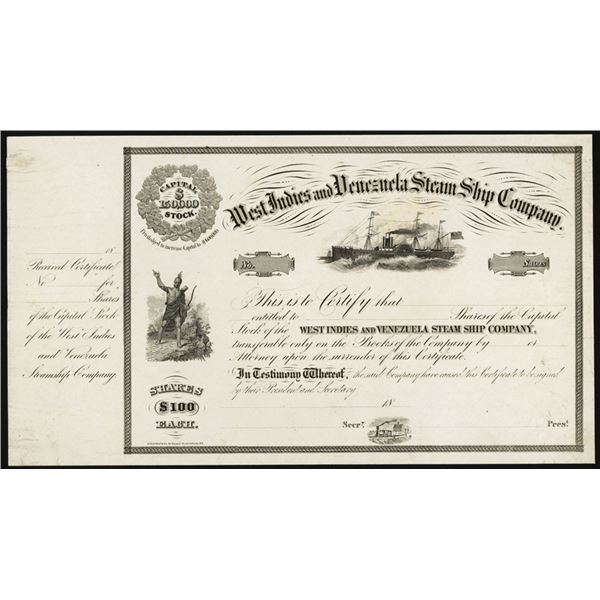 18
Received Certificate
No for
Shares
of the Capital Stock
of the West Indies
and Venezuela
Steamship Company.
CAPITAL
$
150,000
STOCK.
Privileged to increase Capital to
West Indies and Venezuela Steam Ship Company.
No.
Shares
This is to Certify that
entitled to Shares of the Capital
Stock of the WEST INDIES AND VENEZUELA STEAM SHIP COMPANY,
transferable only on the Books of the Company by or
Attorney upon the surrender of this Certificate.
In Testimony Whereof, the said Company have caused this Certificate to be signed
by their President and Secretary
18
SHARES
$100
EACH.
Secy. Prest.